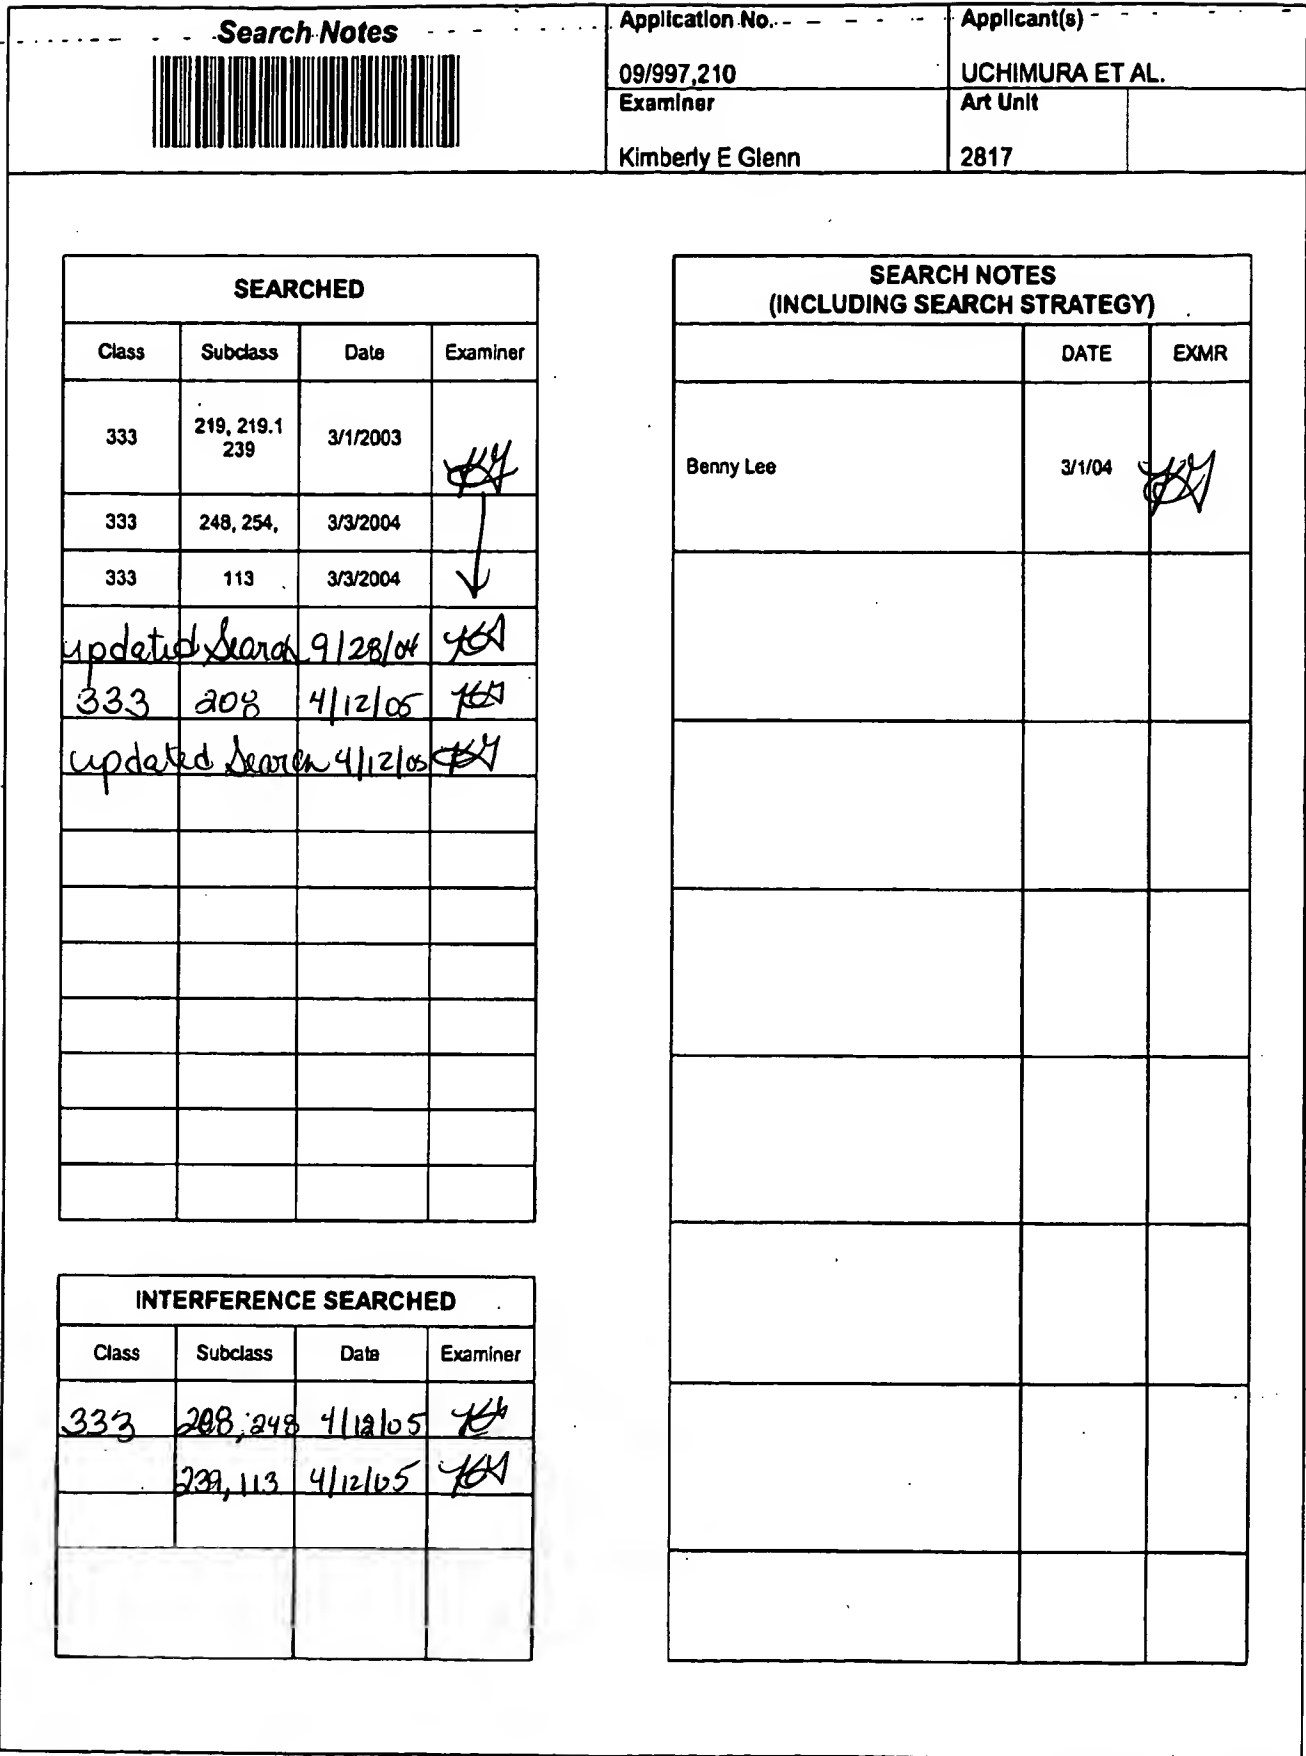 Search Notes
Application No.
Applicant(s)
09/997,210
UCHIMURA ET AL.
Examiner
Art Unit
Kimberly E Glenn
2817
SEARCHED
Class Subclass Date Examiner
333 219, 219.1 239 3/1/2003 KG
333 248, 254, 3/3/2004
333 113 3/3/2004
updated Search 9/28/04 KG
333 208 4/12/05 KG
updated Search 4/12/05 KG
INTERFERENCE SEARCHED
Class Subclass Date Examiner
333 208, 248 4/12/05 KG
239, 113 4/12/05 KG
SEARCH NOTES
(INCLUDING SEARCH STRATEGY)
DATE EXMR
Benny Lee 3/1/04 KG